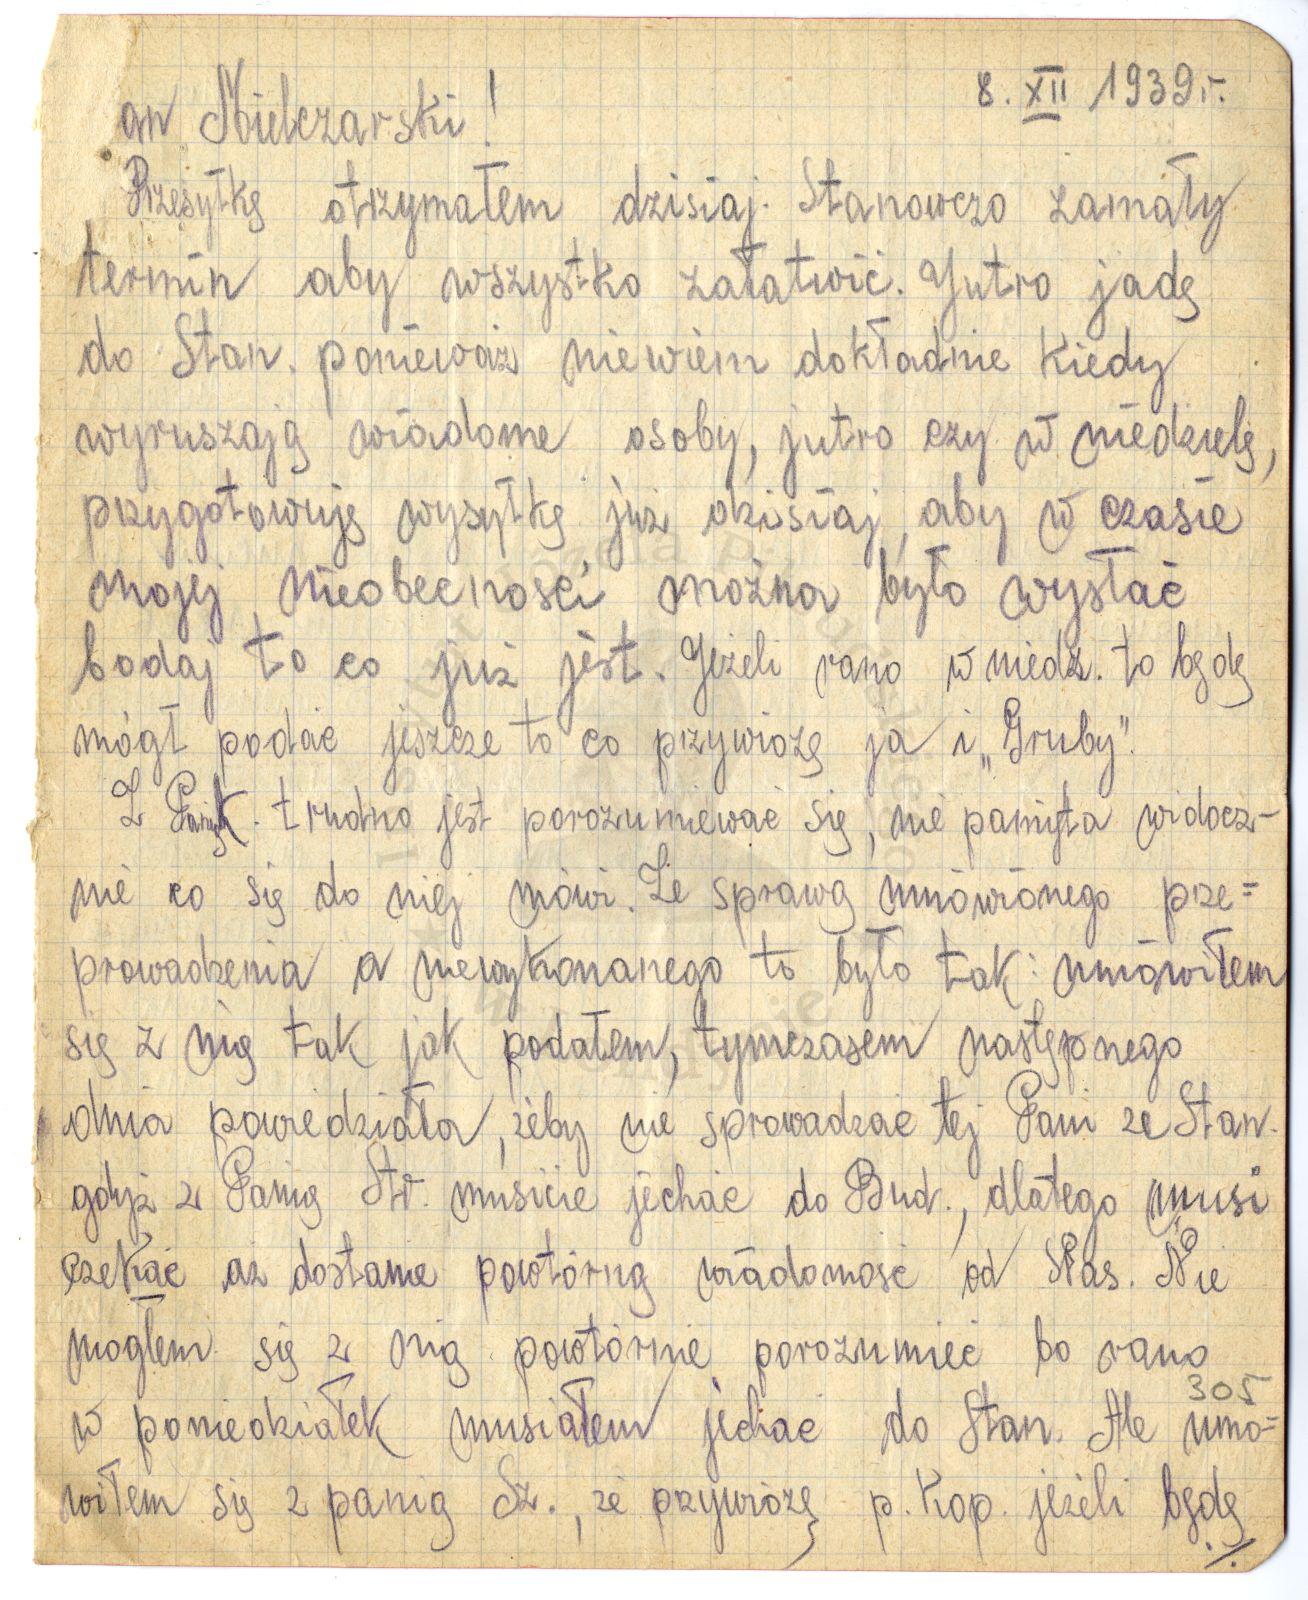 8. XII 1939 r.
an Mielczarski!
Przesyłkę otrzymałem dzisiaj. Stanowczo zamały
termin aby wszystko załatwić. Jutro jadę
do Stan. ponieważ niewiem dokładnie kiedy
wyruszają wiadome osoby, jutro czy w niedzielę,
przygotowuję wysyłkę już dzisiaj, aby w czasie
mojej nieobecności można było wysłać
bodaj to co już jest. Jeżeli rano w niedz. to będę
mógł podać jeszcze to co przywiozę ja i „Gruby".
Z trudno jest porozumiewać się, nie pamięta widocz-
nie co się do niej mówi. Ze sprawą umówionego prze=
prowadzenia a niewykonanego to było tak: umówiłem
się z nią tak jak podałem, tymczasem następnego
dnia powiedziała, żeby nie sprowadzać tej Pani ze Stan.
gdyż z Panią Str. musicie jechać do Bud., dlatego musi
czekać aż dostanie powtórną wiadomość od Was. Nie
mogłem się z nią powtórnie porozumieć bo rano
305
w poniedziałek musiałem jechać do Stan. Ale umó=
wiłem się z panią Sz., że przywiozę p. Kop. jeżeli będę
./.
Instytut Józefa Piłsudskiego
w Londynie